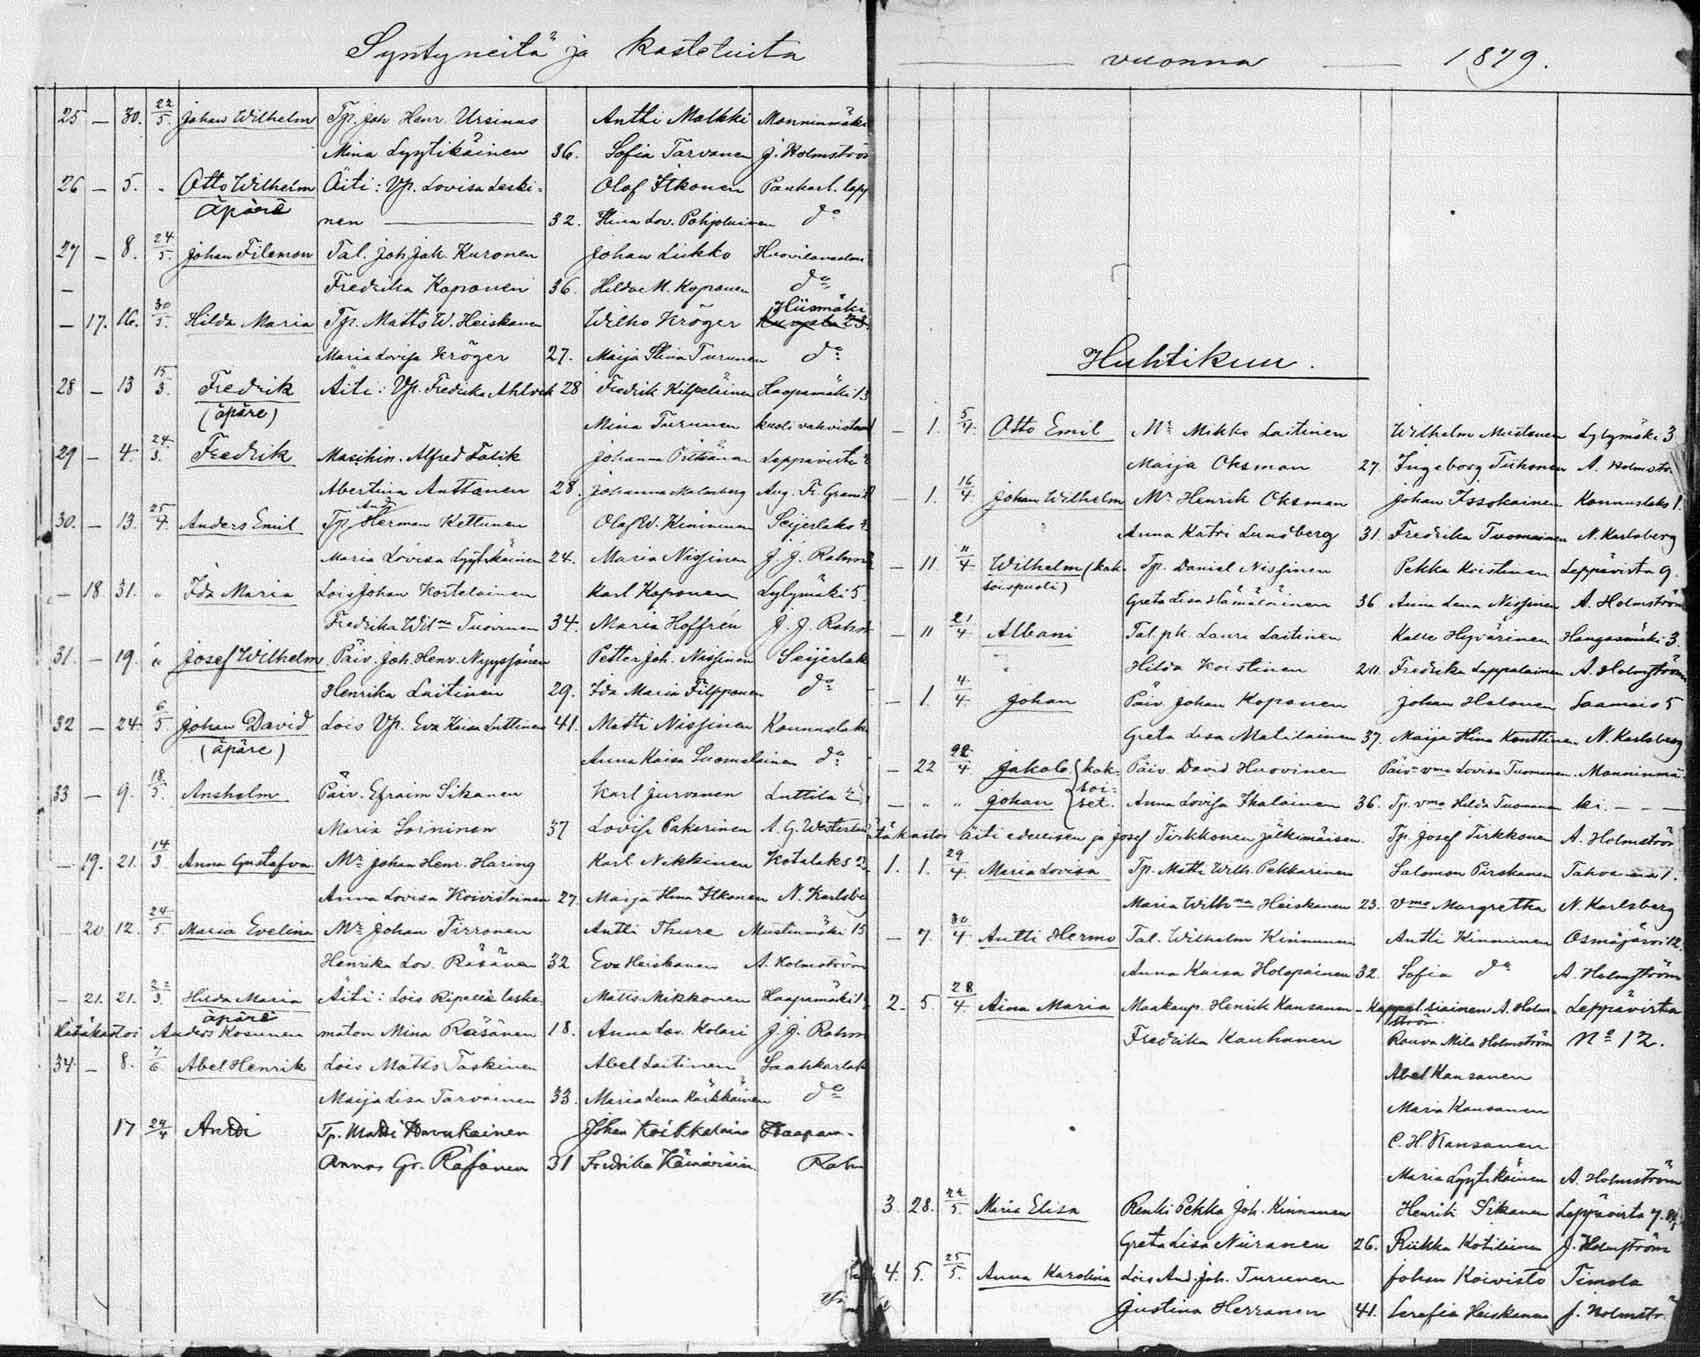 Syntyneitä ja kastetuita
25 — 30. 22/5. Johan Wilhelm Tp. Joh Henr. Ursinus Antti Malkki Manninmäki
Mina Lyytikäinen 36. Sofia Tarvanen J. Holmströ
26 — 5. " Otto Wilhelm Äiti: Vp. Lovisa Leski- Olof Itkonen
äpärä nen 32. Stina Lov. Pohjolainen do
27 — 8. 24/5. Johan Filemon Tal. Joh Joh. Kuronen Johan Liukko
— Fredrika Koponen 36. Hilda M. Koponen do
— 17. 16. 30/5. Hilda Maria Tp. Matts W. Heiskanen Wilho Kröger Hiismäki
Maria Lovisa Kröger 27. Maija Stina Turunen do
28 — 13 15/3. Fredrik Äiti: Vp. Fredrika 28 Fredrik Kilpeläinen Haapamäki 13
(äpäre) Mina Turunen
29 — 4. 24/3. Fredrik Masihin. Alfred Johanna
Abertina Anttonen 28. Johanna Malmberg Aug. Fr.
30. — 13. 25/4. Anders Emil Tp. Herman Kettunen Olof W. Kinnunen Seijerlaks
Maria Lovisa Lyytikäinen 24. Maria Nissinen J. J. Rahm
— 18. 31. " Ida Maria Lois Johan Kortelainen Karl Koponen Lylymäki 5
Fredrika Wilma Tuovinen 34. Maria Hoffrén J. J. Rahm
31. — 19. " Josef Wilhelm Päiv. Joh. Henr. Nyyssönen Petter Joh. Nissinen Seijerlak
Henrika Laitinen 29. Ida Maria Filpponen do
32 — 24 6/5 Johan David Lois Vp. Eva Kaisa Luttinen 41. Matti Nissinen Konnuslaks
(äpäre) Anna Kaisa Suomalainen do
33 — 9. 18/5. Ansholm Päiv. Efraim Sikanen Karl Jurvanen Luttila
Maria Soininen 37 Lovisa Pakarinen A. G. Westerlu
— 19. 21. 14/3. Anna Gustafva Mr Johan Henr. Haring Karl Nikkinen Kotalaks
Anna Lovisa Koivistoinen 27. Maija Stina Itkonen N. Karlsbe
— 20 12. 24/5. Maria Evelina Mr Johan Tirronen Antti Thure Mustinmäki 15
Henrika Lov. Räsänen 32 Eva Heiskanen A. Holmström
— 21. 21. 22/3. Hilda Maria Äiti: Lois Matts Mikkonen Haapamäki
äpäre
Hätäkastoi Anders Kosunen maton Mina Räsänen 18. Anna Lov. Kolari J. J. Rahm
34. — 8. Abel Henrik Lois Matts Taskinen Abel Laitinen Saahkarlah
Maija Lisa Tarvainen 33. Maria Lena Kärkkäinen do
17 24/4 Antti Tp. Matti Johan
Annas Gr. Räsänen 31 Fredrika Rahm
vuonna 1879.
Huhtikuu.
— 1. 5/4. Otto Emil Mr Mikko Laitinen Wilhelm Mustonen Lylymäki 3
Maija Oksman 27. Ingeborg Tiihonen A. Holmstr.
— 1. 16/4. Johan Wilhelm Mr Henrik Oksman Johan Issokainen Konnuslaks 1.
Anna Katri Lundberg 31. Fredrika Tuomainen N. Karlsberg
— 11. 11/4 Wilhelm (kak- Tp. Daniel Nissinen Pekka Koistinen Leppävirta 9.
soispuoli) Greta Lisa Hämäläinen 36 Anna Lena Nissinen A. Holmström
— 11 21/4. Albani Tal. ph. Lauri Laitinen Kalle Hyvärinen Hangasmäki 3.
Hilda Koistinen 20. Fredrika Lappalainen A. Holmström
— 1. 4/4. Johan Päiv Johan Koponen Johan Halonen Saamais 5
Greta Lisa Matilainen 37. Maija Stina Konttinen N. Karlsberg
— 22 22/4 Jakob {kak- Päiv. David Huovinen Päiv vmo Lovisa Tuomunen Manninmä-
— " " Johan {soi-set. Anna Lovisa Ikaläinen 36. Tp. vmo Hilda Tuomunen ki. — — —
ätäkastoi äiti edellisen ja Josef Tirkkonen jälkimäisen. Tp. Josef Tirkkonen A. Holmström
1. 1. 29/4. Maria Lovisa Tp. Matti Wilh. Pekkarinen Salomon Pirskanen
Maria Wilhma Heiskanen 23. Vmo Margretha N. Karlsberg
— 7. 30/4. Antti Hermo Tal. Wilhelm Kinnunen Antti Kinnunen Osmajärvi 12.
Anna Kaisa Holopainen 32. Sofia do A. Holmström
2 — 5 28/4. Aina Maria Maakaup. Henrik Kansanen — Kappalaiainen A. Holm- Leppävirta
ström
Fredrika Kauhanen Rouva Mila Holmström No 12.
Abel Kansanen
Maria Kansanen
C. H. Kansanen
Maria Lyytikäinen A. Holmström
3. 28. 22/5. Maria Elisa Renki Pekka Joh. Kinnunen Henrik Sikanen Leppävirta 7.
Greta Lisa Niiranen 26. Riikka Kotilainen J. Holmström
4. 5. 25/5. Anna Karolina Lois And. Joh. Turunen Johan Koivisto Timola
Justina Herranen 41. Serafia Heiskanen J. Holmstr.